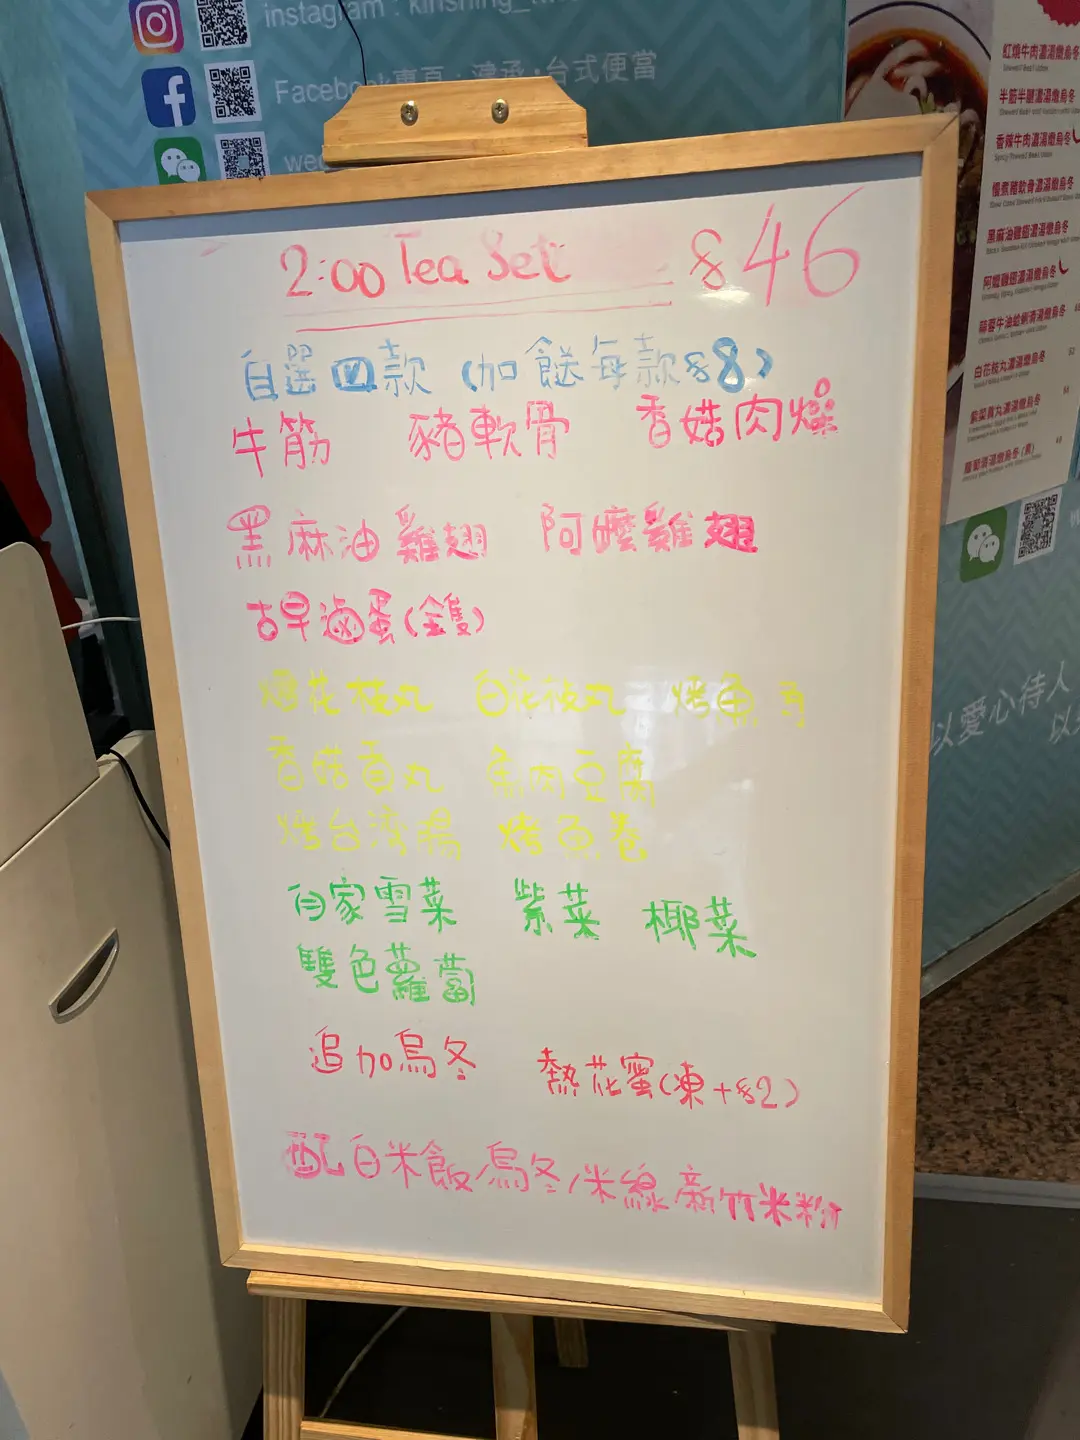 instagram : kinshing_
Facebook專頁 : 台式便當
2:00 Tea Set $46
自選四款 (加餸每款$8)
牛筋 豬軟骨 香菇肉燥
黑麻油雞翅 阿嬤雞翅
古早滷蛋(全隻)
花枝丸 白花枝丸 烤魚
香菇貢丸 魚肉豆腐
烤台灣腸 烤魚卷
自家雪菜 紫菜 椰菜
雙色蘿蔔
追加烏冬 熱花蜜(凍+$2)
配白米飯/烏冬/米線/新竹米粉
紅燒牛肉濃湯燉烏冬
半筋半腩濃湯燉烏冬
香辣牛肉濃湯燉烏冬
慢煮豬軟骨濃湯燉烏冬
黑麻油雞翅濃湯燉烏冬
阿嬤雞翅濃湯燉烏冬
白花枝丸濃湯燉烏冬
紫菜貢丸濃湯燉烏冬
蘿蔔濃湯燉烏冬(素)
以愛心待人
以